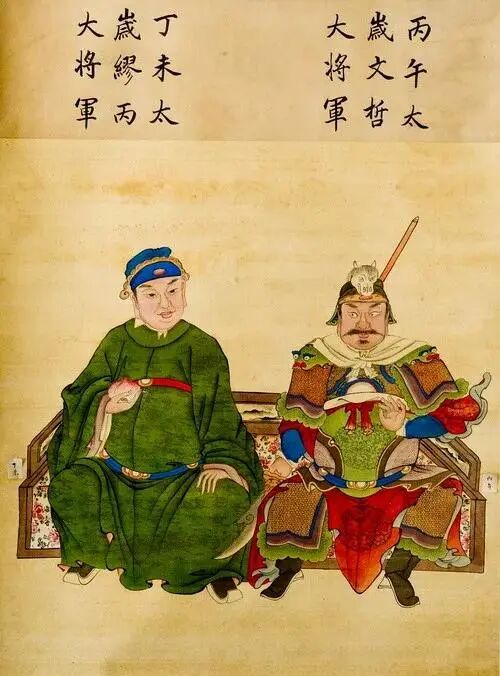 丙午太
歲文哲
大將軍
丁未太
歲繆丙
大將軍